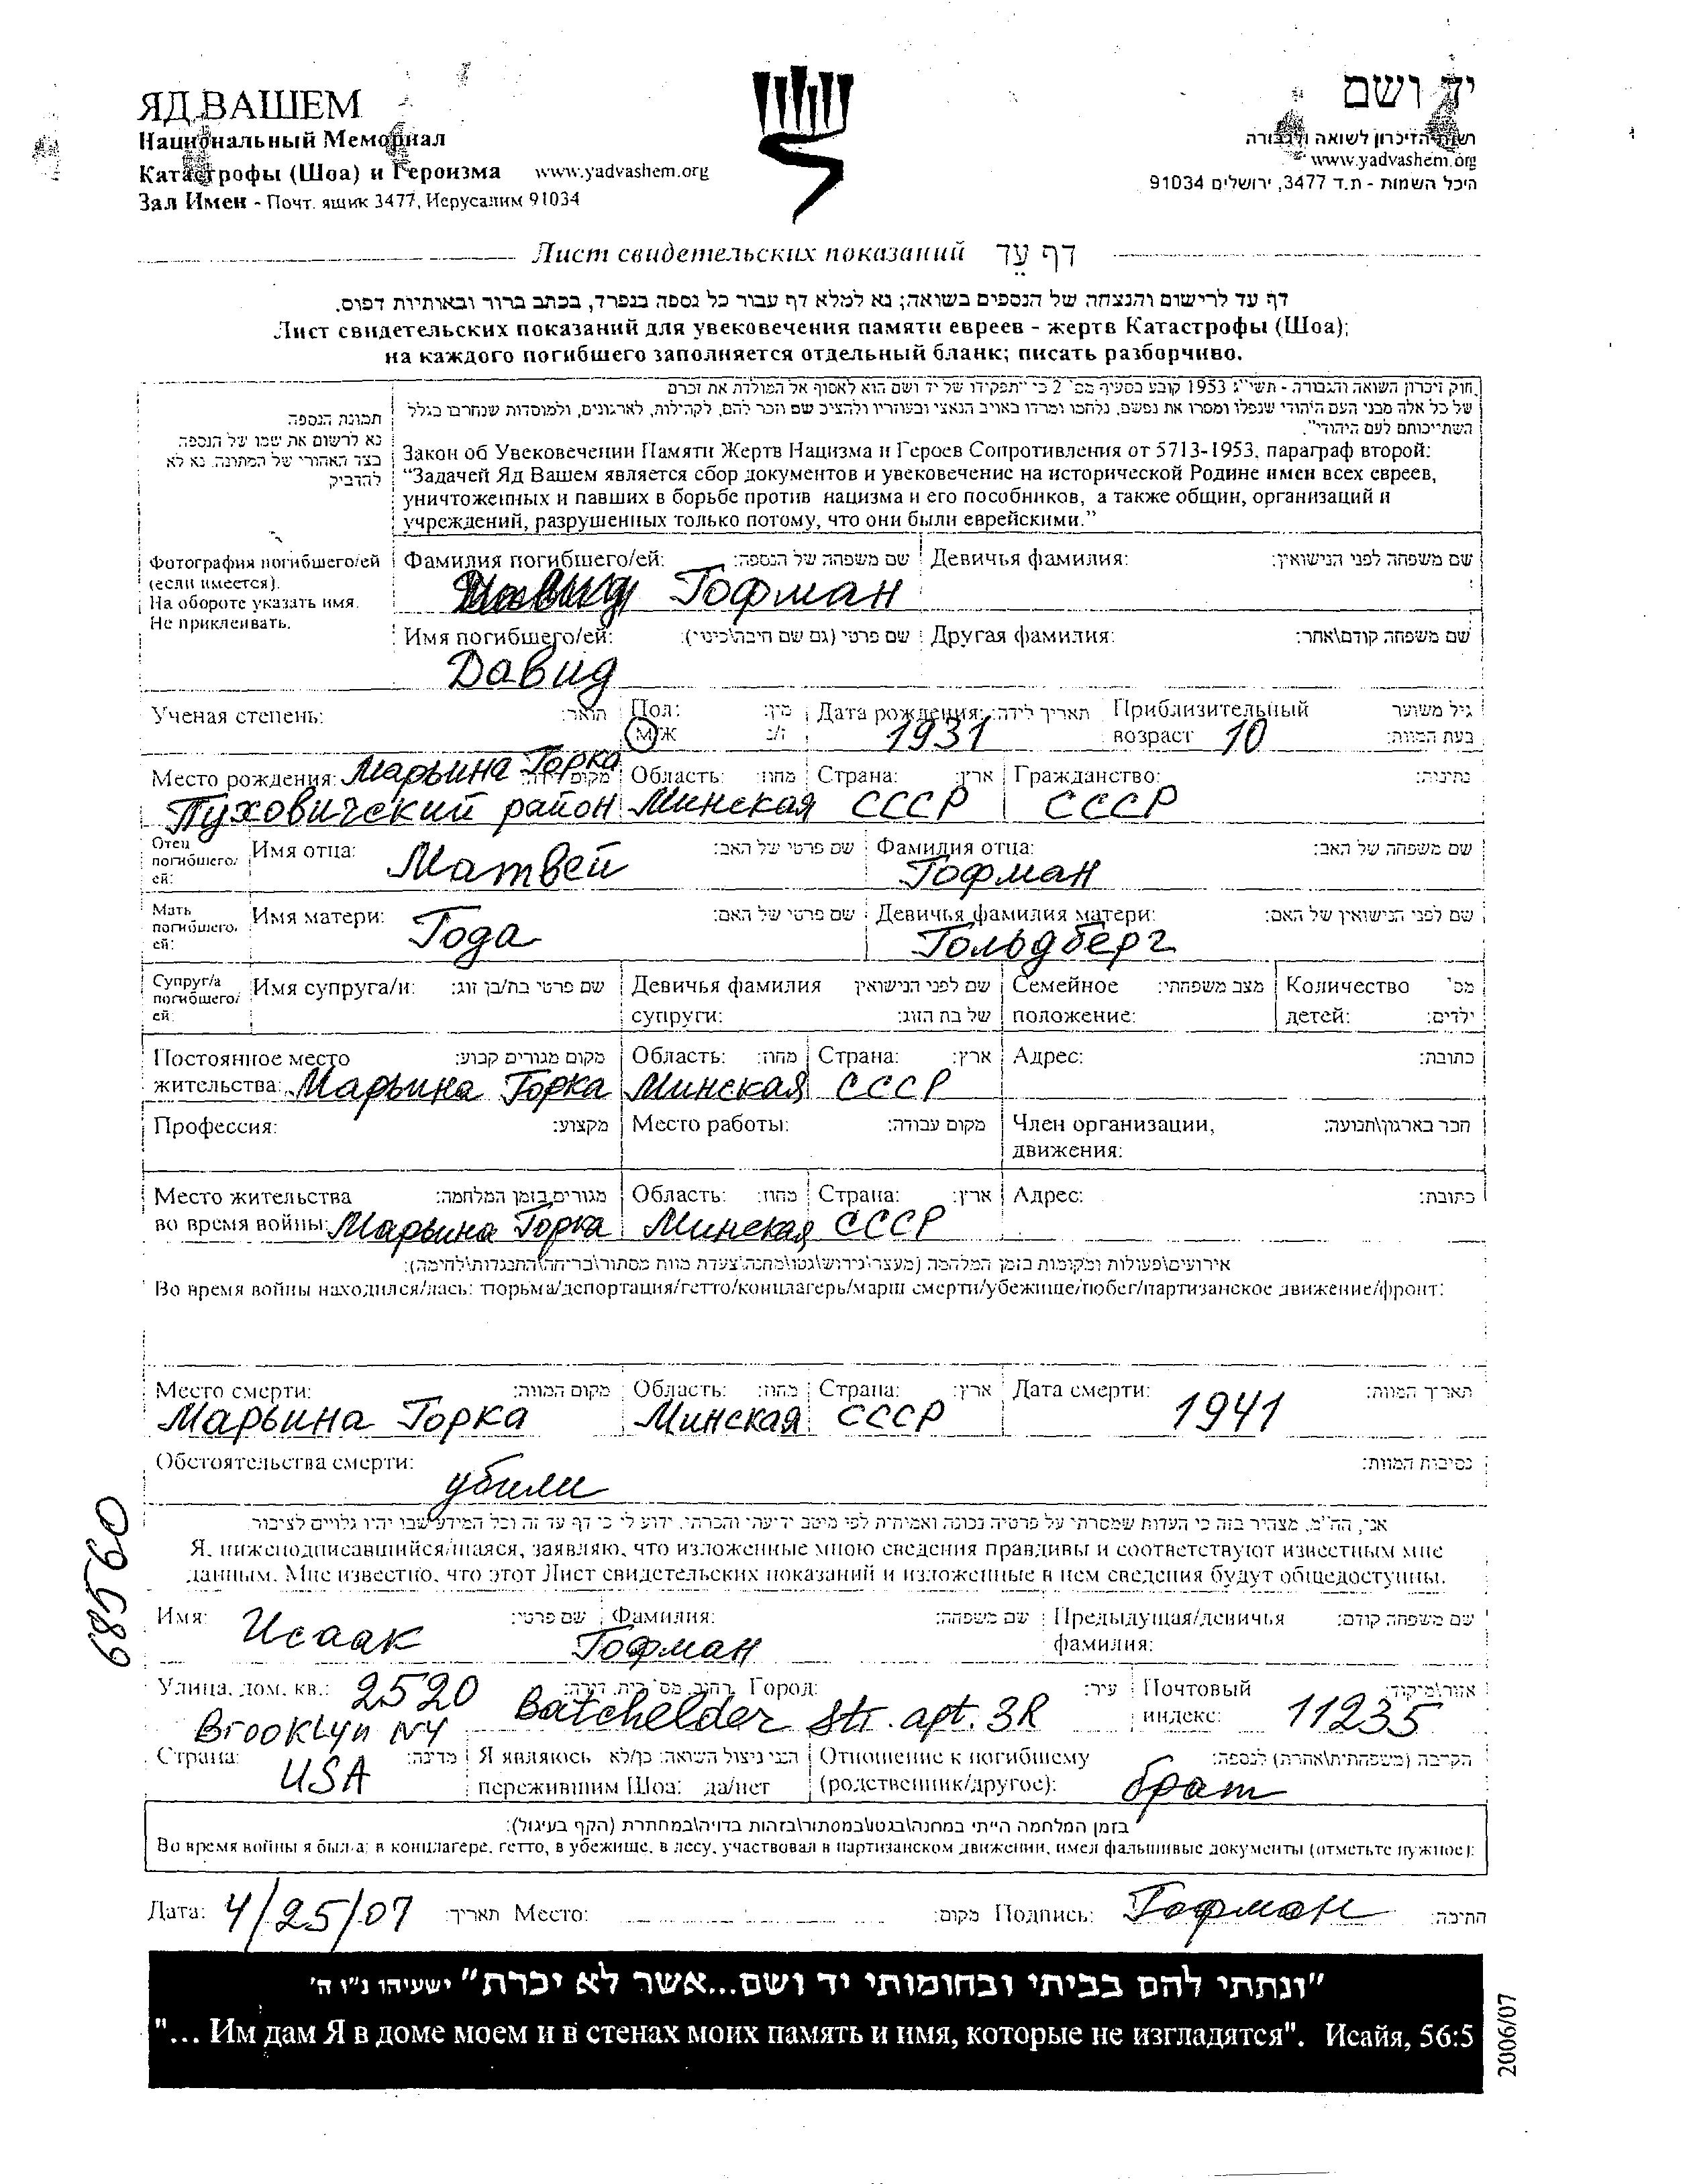 ЯД ВАШЕМ
Национальный Мемориал
Катастрофы (Шоа) и Героизма www.yadvashem.org
Зал Имен - Почт. ящик 3477, Иерусалим 91034
יד ושם
רשות הזיכרון לשואה ולגבורה
www.yadvashem.org
היכל השמות - ת.ד 3477, ירושלים 91034
Лист свидетельских показаний דף עֵד
דף עד לרישום והנצחה של הנספים בשואה; נא למלא דף עבור כל נספה בנפרד, בכתב ברור ובאותיות דפוס.
Лист свидетельских показаний для увековечения памяти евреев - жертв Катастрофы (Шоа);
на каждого погибшего заполняется отдельный бланк; писать разборчиво.
חוק זיכרון השואה והגבורה - תשי"ג 1953 קובע בסעיף מס' 2 כי "תפקידו של יד ושם הוא לאסוף אל המולדת את זכרם
של כל אלה מבני העם היהודי שנפלו ומסרו את נפשם, נלחמו ומרדו באויב הנאצי ובעוזריו ולהציב שם וזכר להם, לקהילות, לארגונים, ולמוסדות שנחרבו בגלל
השתייכותם לעם היהודי".
Закон об Увековечении Памяти Жертв Нацизма и Героев Сопротивления от 5713-1953, параграф второй:
"Задачей Яд Вашем является сбор документов и увековечение на исторической Родине имен всех евреев,
уничтоженных и павших в борьбе против нацизма и его пособников, а также общин, организаций и
учреждений, разрушенных только потому, что они были еврейскими."
תמונת הנספה
נא לרשום את שמו של הנספה
בצד האחורי של התמונה. נא לא
להדביק
Фотография погибшего/ей
(если имеется).
На обороте указать имя.
Не приклеивать.
Фамилия погибшего/ей: שם משפחה של הנספה: Девичья фамилия: שם משפחה לפני הנישואין:
Гофман
Имя погибшего/ей: שם פרטי (גם שם חיבה\כינוי): Другая фамилия: שם משפחה קודם\אחר:
Давид
Ученая степень: תואר: Пол: מין: Дата рождения: תאריך לידה: Приблизительный גיל משוער
М/Ж ז/נ 1931 возраст 10 בעת המוות:
Место рождения: Марьина Горка מקום לידה: Область: מחוז: Страна: ארץ: Гражданство: נתינות:
Пуховичский район Минская СССР СССР
Отец погибшего/ей: Имя отца: Матвей שם פרטי של האב: Фамилия отца: Гофман שם משפחה של האב:
Мать погибшего/ей: Имя матери: Года שם פרטי של האם: Девичья фамилия матери: Гольдберг שם לפני הנישואין של האם:
Супруг/а погибшего/ей: Имя супруга/и: שם פרטי בת/בן זוג: Девичья фамилия שם לפני הנישואין Семейное מצב משפחתי: Количество מס'
супруги: של בת הזוג: положение: детей: ילדים:
Постоянное место מקום מגורים קבוע: Область: מחוז: Страна: ארץ: Адрес: כתובת:
жительства: Марьина Горка Минская СССР
Профессия: מקצוע: Место работы: מקום עבודה: Член организации, חבר בארגון\תנועה:
движения:
Место жительства מגורים בזמן המלחמה: Область: מחוז: Страна: ארץ: Адрес: כתובת:
во время войны: Марьина Горка Минская СССР
אירועים\פעולות ומקומות בזמן המלחמה (מעצר\גירוש\גטו\מחנה\צעדת מוות מסתור\בריחה\התנגדות\לחימה):
Во время войны находился/лась: тюрьма/депортация/гетто/концлагерь/марш смерти/убежище/побег/партизанское движение/фронт:
Место смерти: מקום המוות: Область: מחוז: Страна: ארץ: Дата смерти: תאריך המוות:
Марьина Горка Минская СССР 1941
Обстоятельства смерти: נסיבות המוות:
убили
אני, הח"מ, מצהיר בזה כי העדות שמסרתי על פרטיה נכונה ואמיתית לפי מיטב ידיעתי והכרתי. ידוע לי כי דף עד זה וכל המידע שבו יהיו גלויים לציבור.
Я, нижеподписавшийся/шаяся, заявляю, что изложенные мною сведения правдивы и соответствуют известным мне
данным. Мне известно, что этот Лист свидетельских показаний и изложенные в нем сведения будут общедоступны.
Имя: Исаак שם פרטי: Фамилия: שם משפחה: Предыдущая/девичья שם משפחה קודם:
Гофман фамилия:
Улица, дом, кв.: 2520 רחוב, מס' בית, דירה: Город: עיר: Почтовый אזור\מיקוד:
Brooklyn NY Batchelder str. apt. 3R индекс: 11235
Страна: USA מדינה: Я являюсь הנני ניצול השואה: כן/לא Отношение к погибшему הקרבה (משפחתית\אחרת) לנספה:
пережившим Шоа: да/нет (родственник/другое): брат
בזמן המלחמה הייתי במחנה\בגטו\במסתור\בזהות בדויה\במחתרת (הקף בעיגול):
Во время войны я был-а: в концлагере, гетто, в убежище, в лесу, участвовал в партизанском движении, имел фальшивые документы (отметьте нужное):
Дата: 4/25/07 תאריך: Место: מקום: Подпись: Гофман חתימה:
"ונתתי להם בביתי ובחומותי יד ושם...אשר לא יכרת" ישעיהו נ"ו ה'
"... Им дам Я в доме моем и в стенах моих память и имя, которые не изгладятся". Исайя, 56:5
68560
2006/07